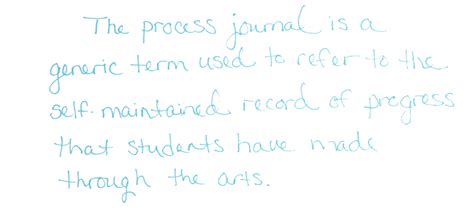 The process journal is a
generic term used to refer to the
self-maintained record of progress
that students have made
through the arts.